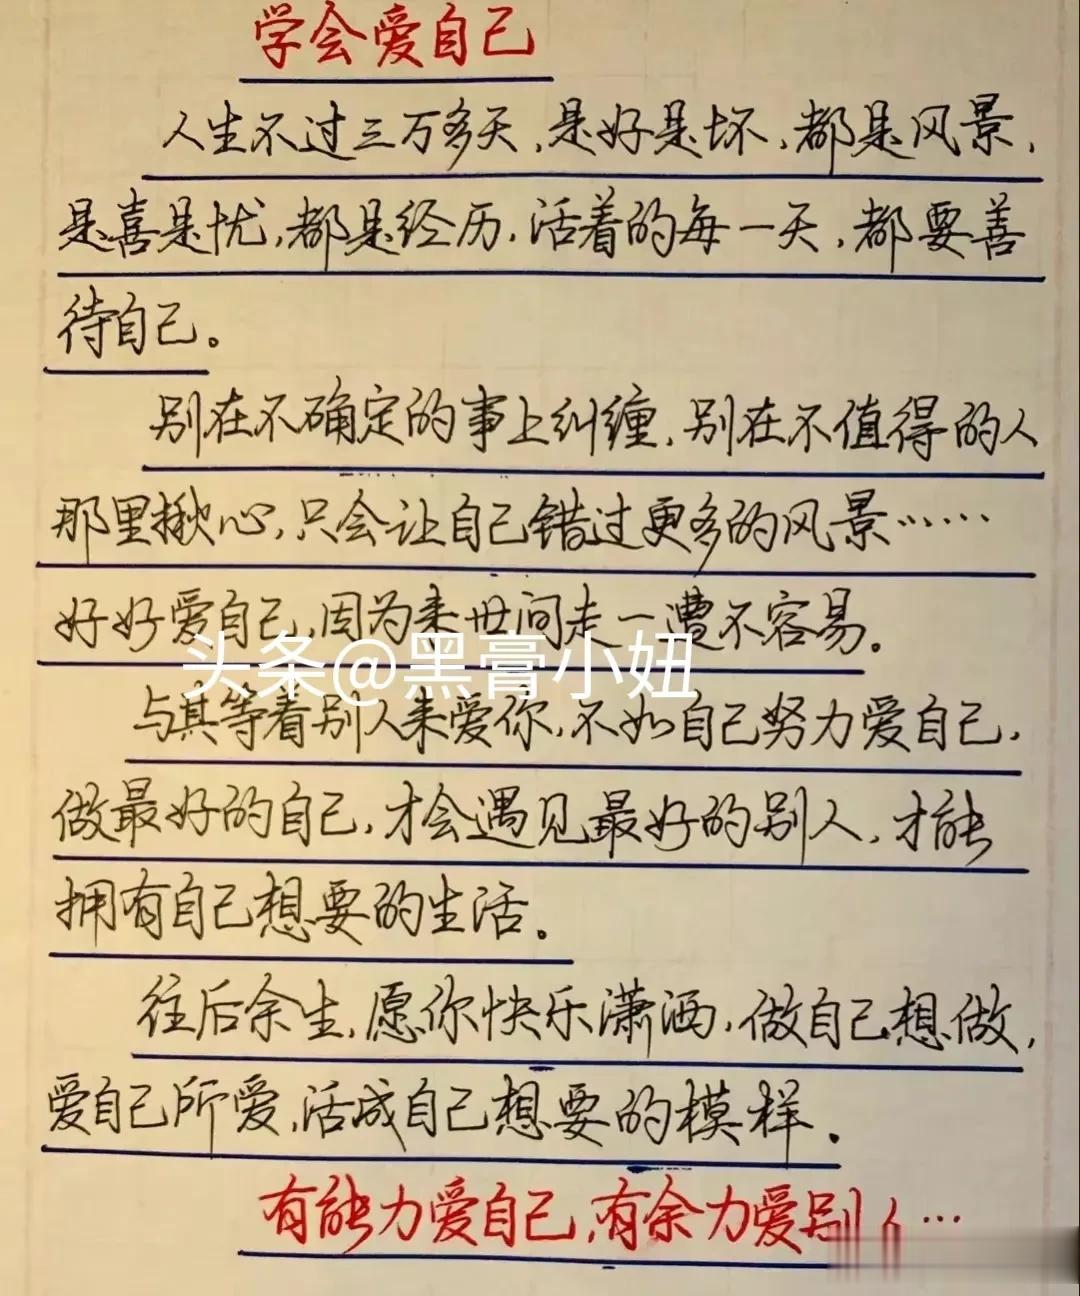 学会爱自己
人生不过三万多天,是好是坏,都是风景,
是喜是忧,都是经历,活着的每一天,都要善
待自己。
别在不确定的事上纠缠,别在不值得的人
那里揪心,只会让自己错过更多的风景……
好好爱自己,因为来世间走一遭不容易。
头条@黑膏小妞
与其等着别人来爱你,不如自己努力爱自己,
做最好的自己,才会遇见最好的别人,才能
拥有自己想要的生活。
往后余生,愿你快乐潇洒,做自己想做,
爱自己所爱,活成自己想要的模样.
有能力爱自己,有余力爱别人…